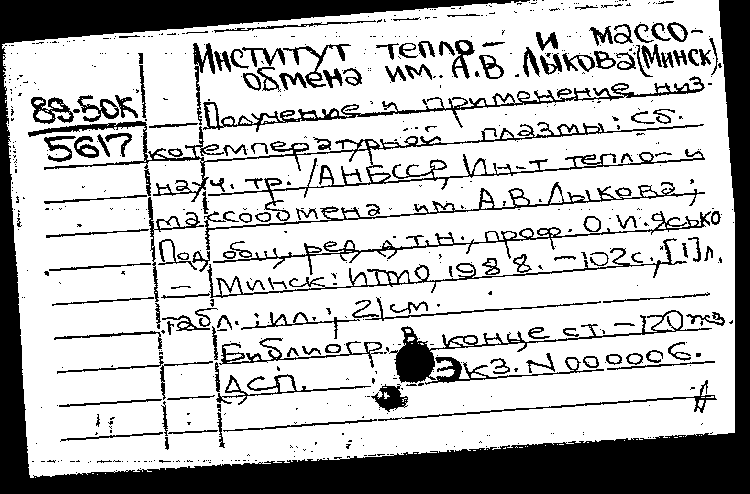 Институт тепло- и массо-
обмена им. А.В.Лыкова(Минск).
89-50К
5617
Получение и применение низ-
котемпературной плазмы: Сб.
науч. тр. /АНБССР, Ин-т тепло- и
массообмена им. А.В.Лыкова;
Под общ. ред. д.т.н., проф. О.И.Ясько
- Минск: ИТМО, 1988. - 102с., [1]л.
табл.: ил.; 21см.
Библиогр. в конце ст. - 120экз.
ДСП. Экз. N 000006.